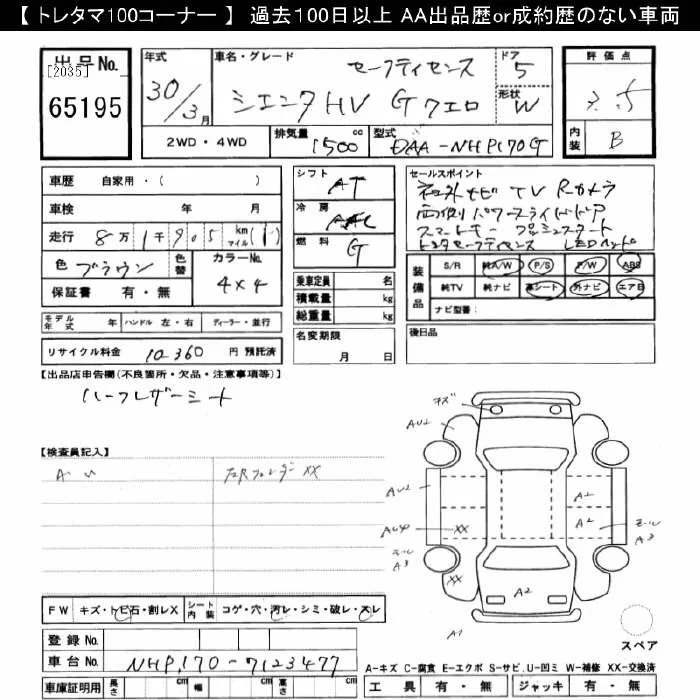 【 トレタマ100コーナー 】 過去100日以上 AA出品歴or成約歴のない車両
出品No.
[2035]
65195
年式
30/3月
車名・グレード
セーフティセンス
シエンタHV G クエロ
ドア
5
形状
W
評価点
3.5
内装
B
2WD・4WD
排気量 1500 cc
型式 DAA-NHP170G
車歴 自家用・( )
車検 年 月
走行 8万1千905 km マイル
色 ブラウン
色替
カラーNo. 4X4
保証書 有・無
シフト AT
冷房 AAC
燃料 G
乗車定員 名
積載量 kg
総重量 kg
セールスポイント
社外ナビ TV Rカメラ
両側パワースライドドア
スマートキー プッシュスタート
トヨタセーフティセンス LEDヘッド
装備品
S/R 純A/W P/S P/W ABS
純TV 純ナビ 革シート 外ナビ エアB
ナビ型番:
モデル年式 年 ハンドル 左・右 ディーラー・並行
リサイクル料金 10360 円 預託済
名変期限
月 日
後日品
【出品店申告欄(不良箇所・欠品・注意事項等)】
ハーフレザーシート
【検査員記入】
A・U
左Rフェンダー XX
FW キズ・トビ石・割レX シート内装 コゲ・穴・汚レ・シミ・破レ・スレ
登録No.
車台No. NHP170-7123477
車庫証明用 長さ cm 幅 cm 高さ cm
キズ
AU1
AU2
AU4
XX
モール
A3
XX
A1
A2
A2
A1
モール
A3
スペア
A-キズ C-腐食 E-エクボ S-サビ U-凹ミ W-補修 XX-交換済
工具 有・無 ジャッキ 有・無